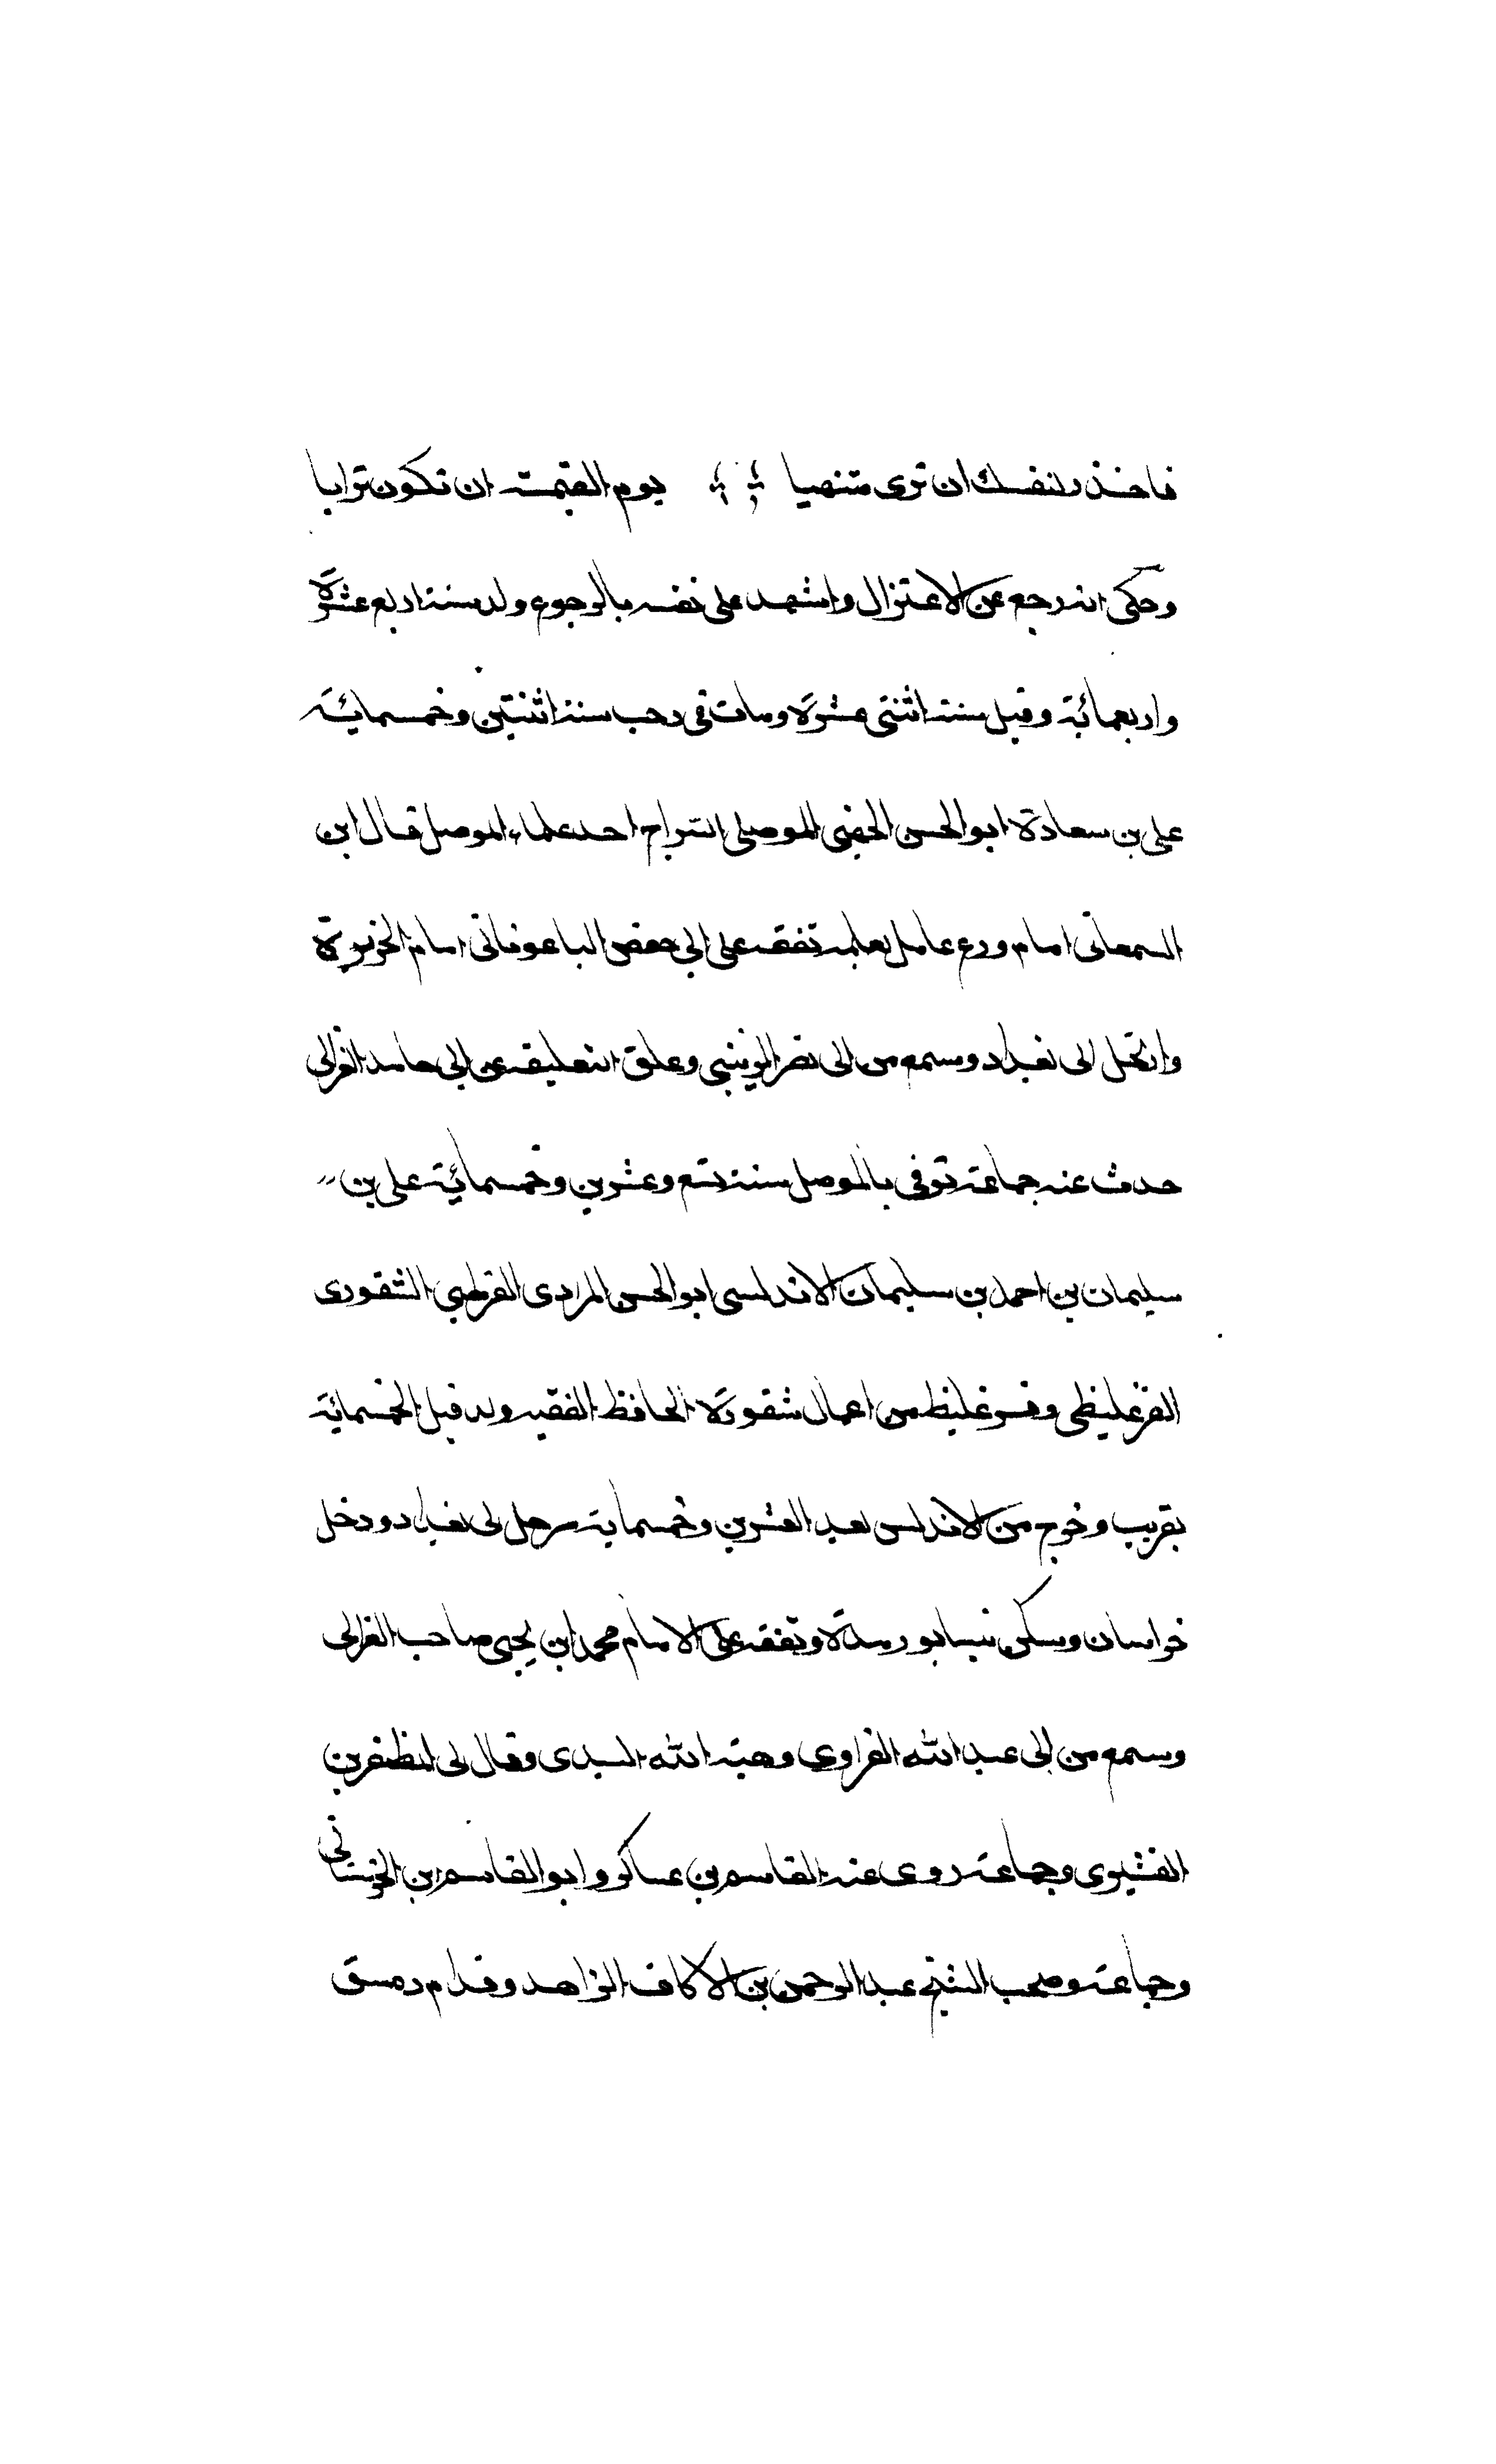 فاحذر لنفسك ان ترى متنهيا يوم القيمة ان تكون ترابا
وحكى انه رجع عن الاعتزال واشهد على نفسه بالرجوع ولد سنة اربع عشرة
واربعمائة وقيل سنة اثنتى عشرة ومات فى رجب سنة اثنتين وخمسمائة
على بن سعادة ابو الحسن الجهنى الموصلى السراج احد علماء الموصل قال ابن
السمعانى امام ورع عامل بعلمه تفقه على ابى حفص الباغوفانى امام الجزيرة
وارتحل الى بغداد وسمع من ابى نصر الزينبى وعلق التعليقة عن ابى حامد الغزالى
حدث عنه جماعة توفى بالموصل سنة تسع وعشرين وخمسمائة على بن
سليمان بن احمد بن سليمان الاندلسى ابو الحسن المرادى القرطبى الشقورى
الفرغليظى وفرغليظ من اعمال شقورة الحافظ الفقيه ولد قبل الخمسمائة
بقريب وخرج من الاندلس بعد العشرين وخمسماية رحل الى بغداد ودخل
خراسان وسكن نيسابور مدة وتفقه على الامام محمد ابن يحيى صاحب الغزالى
وسمع من ابى عبد الله الفراوى وهبة الله السيدى وقال ابى المظفر بن
القشيرى وجماعة روى عنه القاسم بن عساكر وابو القاسم ابن الحرستانى
وجماعة وصحب الشيخ عبد الرحمن بن الاكاف الزاهد وقدم دمسق